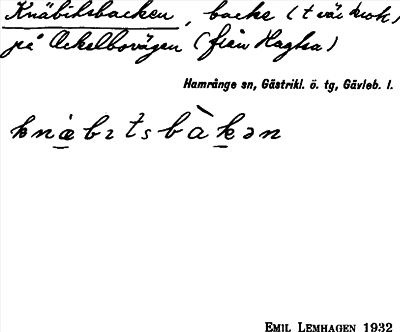 Knäbitsbacken, backe (tvär krok)
på Ockelbovägen (från Hagsta)
Hamrånge sn, Gästrikl. ö. tg, Gävleb. l.
EMIL LEMHAGEN 1932